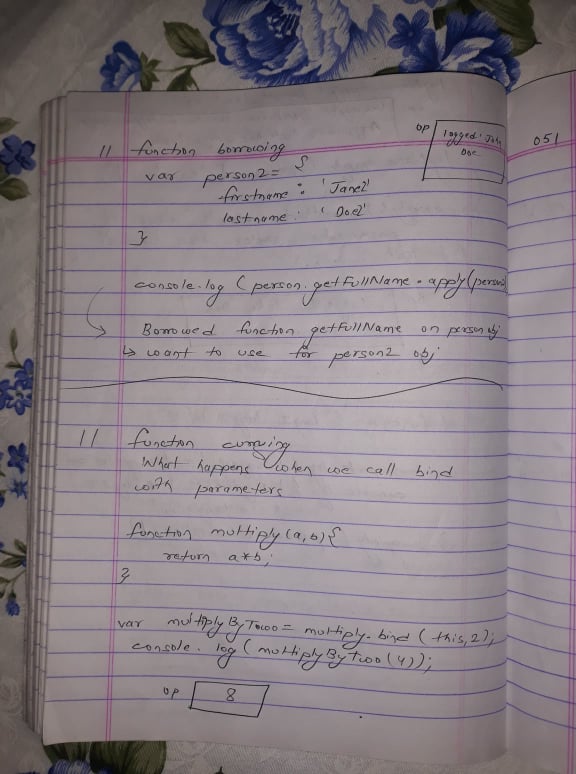 op
logged: John
Doe
051
// function borrowing
var person2 = {
firstname : 'Jane2'
lastname : 'Doe2'
}
console.log (person.getFullName.apply(person
Borrowed function getFullName on person obj
↳ want to use for person2 obj
// function currying
What happens when we call bind
with parameters
function multiply (a,b) {
return a*b;
}
var multiplyByTwoo = multiply.bind (this,2);
console.log (multiplyByTwoo (4));
op 8